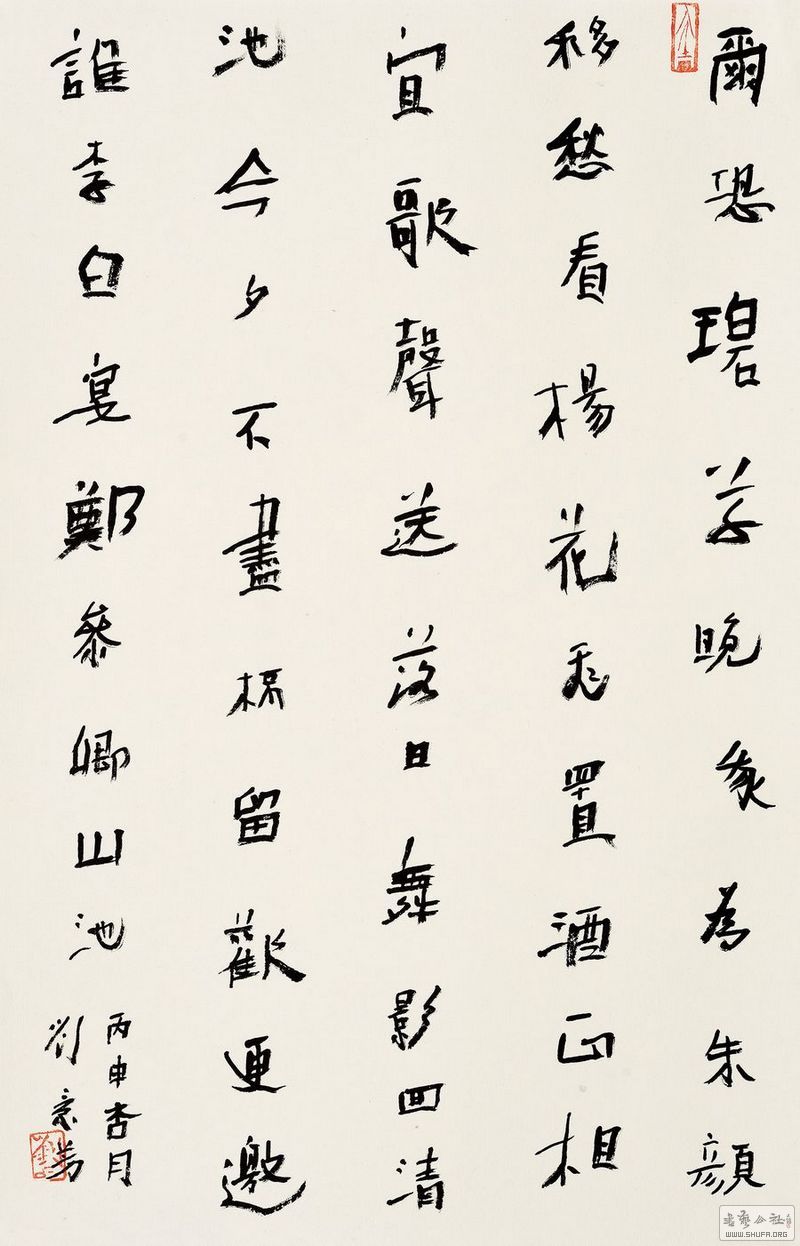 爾恐碧草晚我為朱顏
移愁看楊花飛置酒正相
宜歌聲送落日舞影回清
池今夕不盡杯留歡更邀
誰李白宴鄭參卿山池
丙申杏月
劉
書藝公社
WWW.SHUFA.ORG